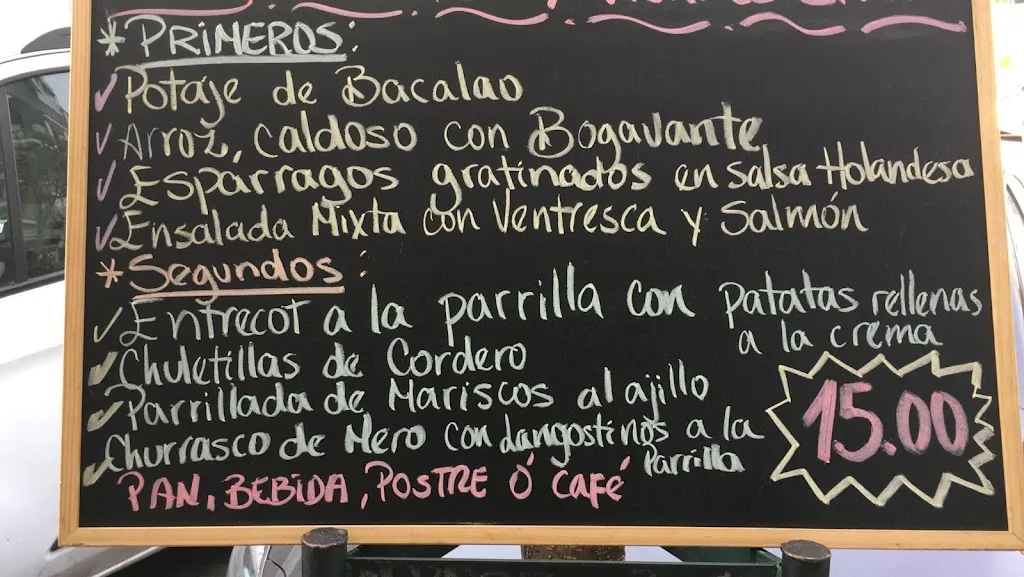 * PRIMEROS:
Potaje de Bacalao
Arroz, caldoso con Bogavante
Esparragos gratinados en salsa Holandesa
Ensalada Mixta con Ventresca y Salmón
* Segundos:
Entrecot a la parrilla con patatas rellenas
a la crema
Chuletillas de Cordero
Parrillada de Mariscos al ajillo
Churrasco de Mero con Langostinos a la
Parrilla
15.00
PAN, BEBIDA, POSTRE Ó café